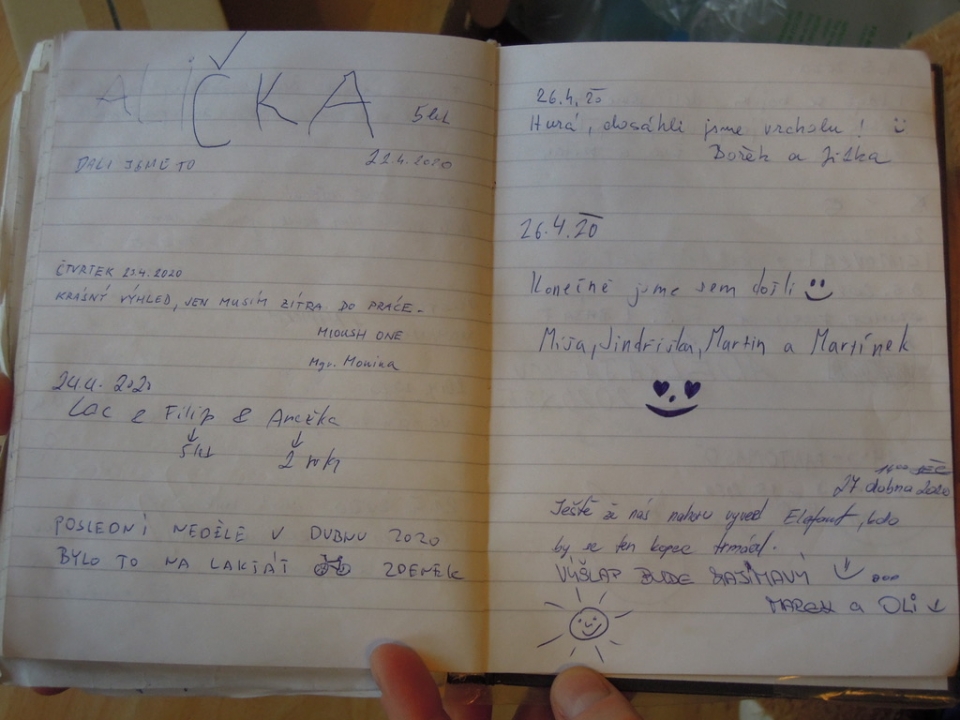 ALIČKA
5 let
DALI JSME TO 22.4.2020
ČTVRTEK 23.4.2020
KRÁSNÝ VÝHLED, JEN MUSÍM ZÍTRA DO PRÁCE -
MIOUSH ONE
Mgr. Monika
24.4. 2020
Filip & Anežka
5 let
2 roky
POSLEDNÍ NEDĚLE V DUBNU 2020
BYLO TO NA LAKTÁT ZDENEK
26.4. 20
Hurá, dosáhli jsme vrcholu!
Bořek a Jitka
26.4.20
Konečně jsme sem došli
Míša, Jindřiška, Martin a Martínek
27 dubna 2020
Ještě že nás nahoru vyvedl Elefant, bylo
by se ten kopec
VÝŠLAP BUDE ZAJÍMAVÝ ...
MAREK a OLI